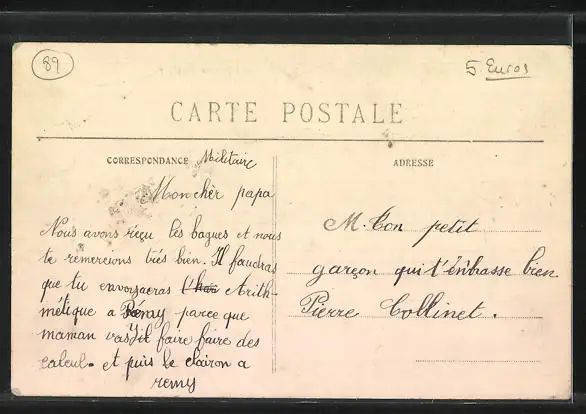 89
5 Euros
CARTE POSTALE
CORRESPONDANCE Militaire
ADRESSE
Mon chèr papa
Nous avons reçu les bagues et nous
te remercions très bien. Il faudras
que tu envoyaeras Arith-
métique a Rémy parce que
maman vas Il faire faire des
calcul. et puis le clairon a
remy
M. Ton petit
garçon qui t'enbrasse bien
Pierre Collinet.